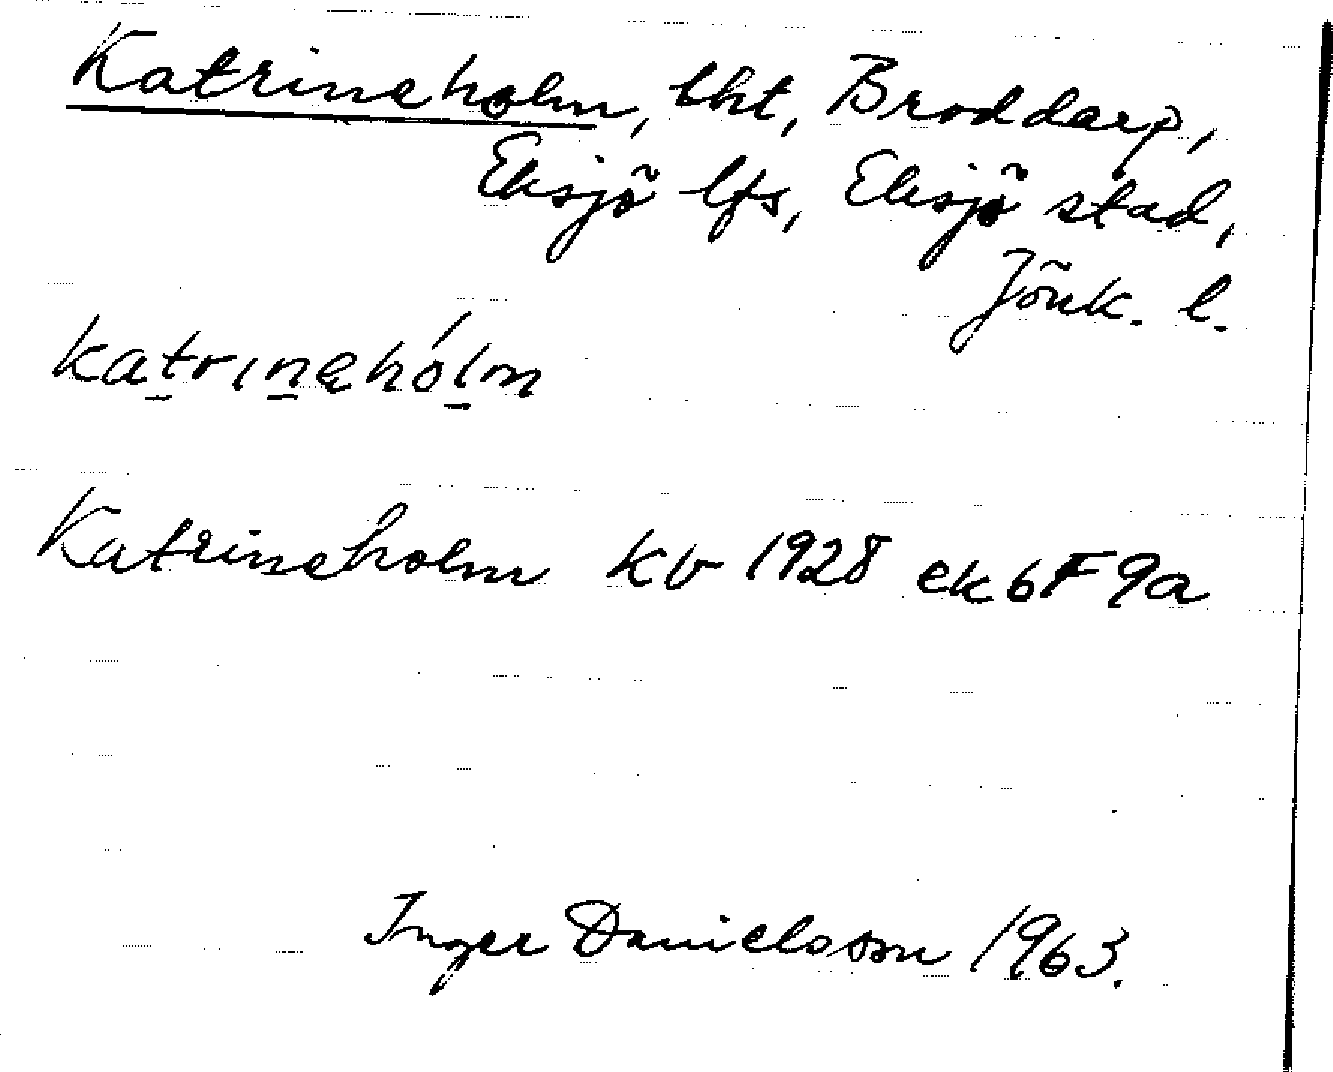 Katrineholm, lht, Broddarp,
Eksjö lfs, Eksjö stad,
Jönk. l.
katrinəhólm
Katrineholm kv 1928 ek 6F9a
Inger Danielsson 1963.